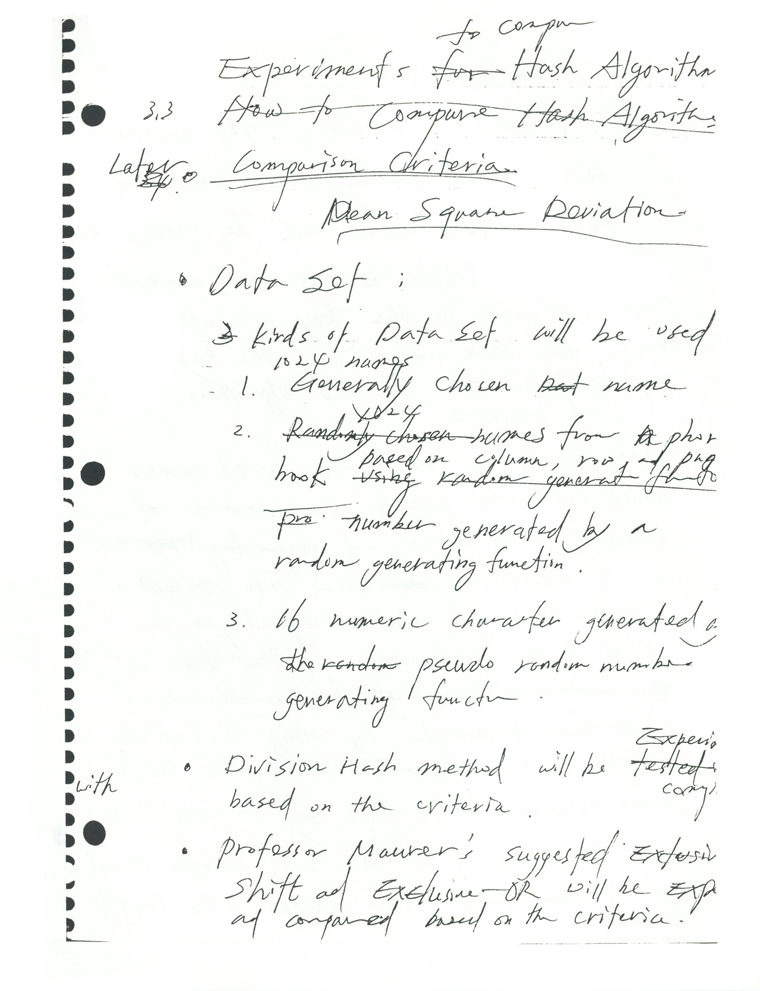 to compar
Experiments for Hash Algorithm
3.3 How to Compare Hash Algorith
Later Comparison Criteria
Mean Square Deviation
• Data Set :
3 kinds of Data Set will be used
1024 names
1. Generally chosen name
1024
2. Randomly chosen names from phon
based on column, row, ad pag
book using random generat
pro. number generated by a
random generating function.
3. 16 numeric character generated
the random pseudo random number
generating functn.
Experi
• Division Hash method will be tested
with
based on the criteria.
• Professor Maurer's suggested Exlusiv
Shift ad Exclusive-OR will be Exp
ad compared based on the criteria.